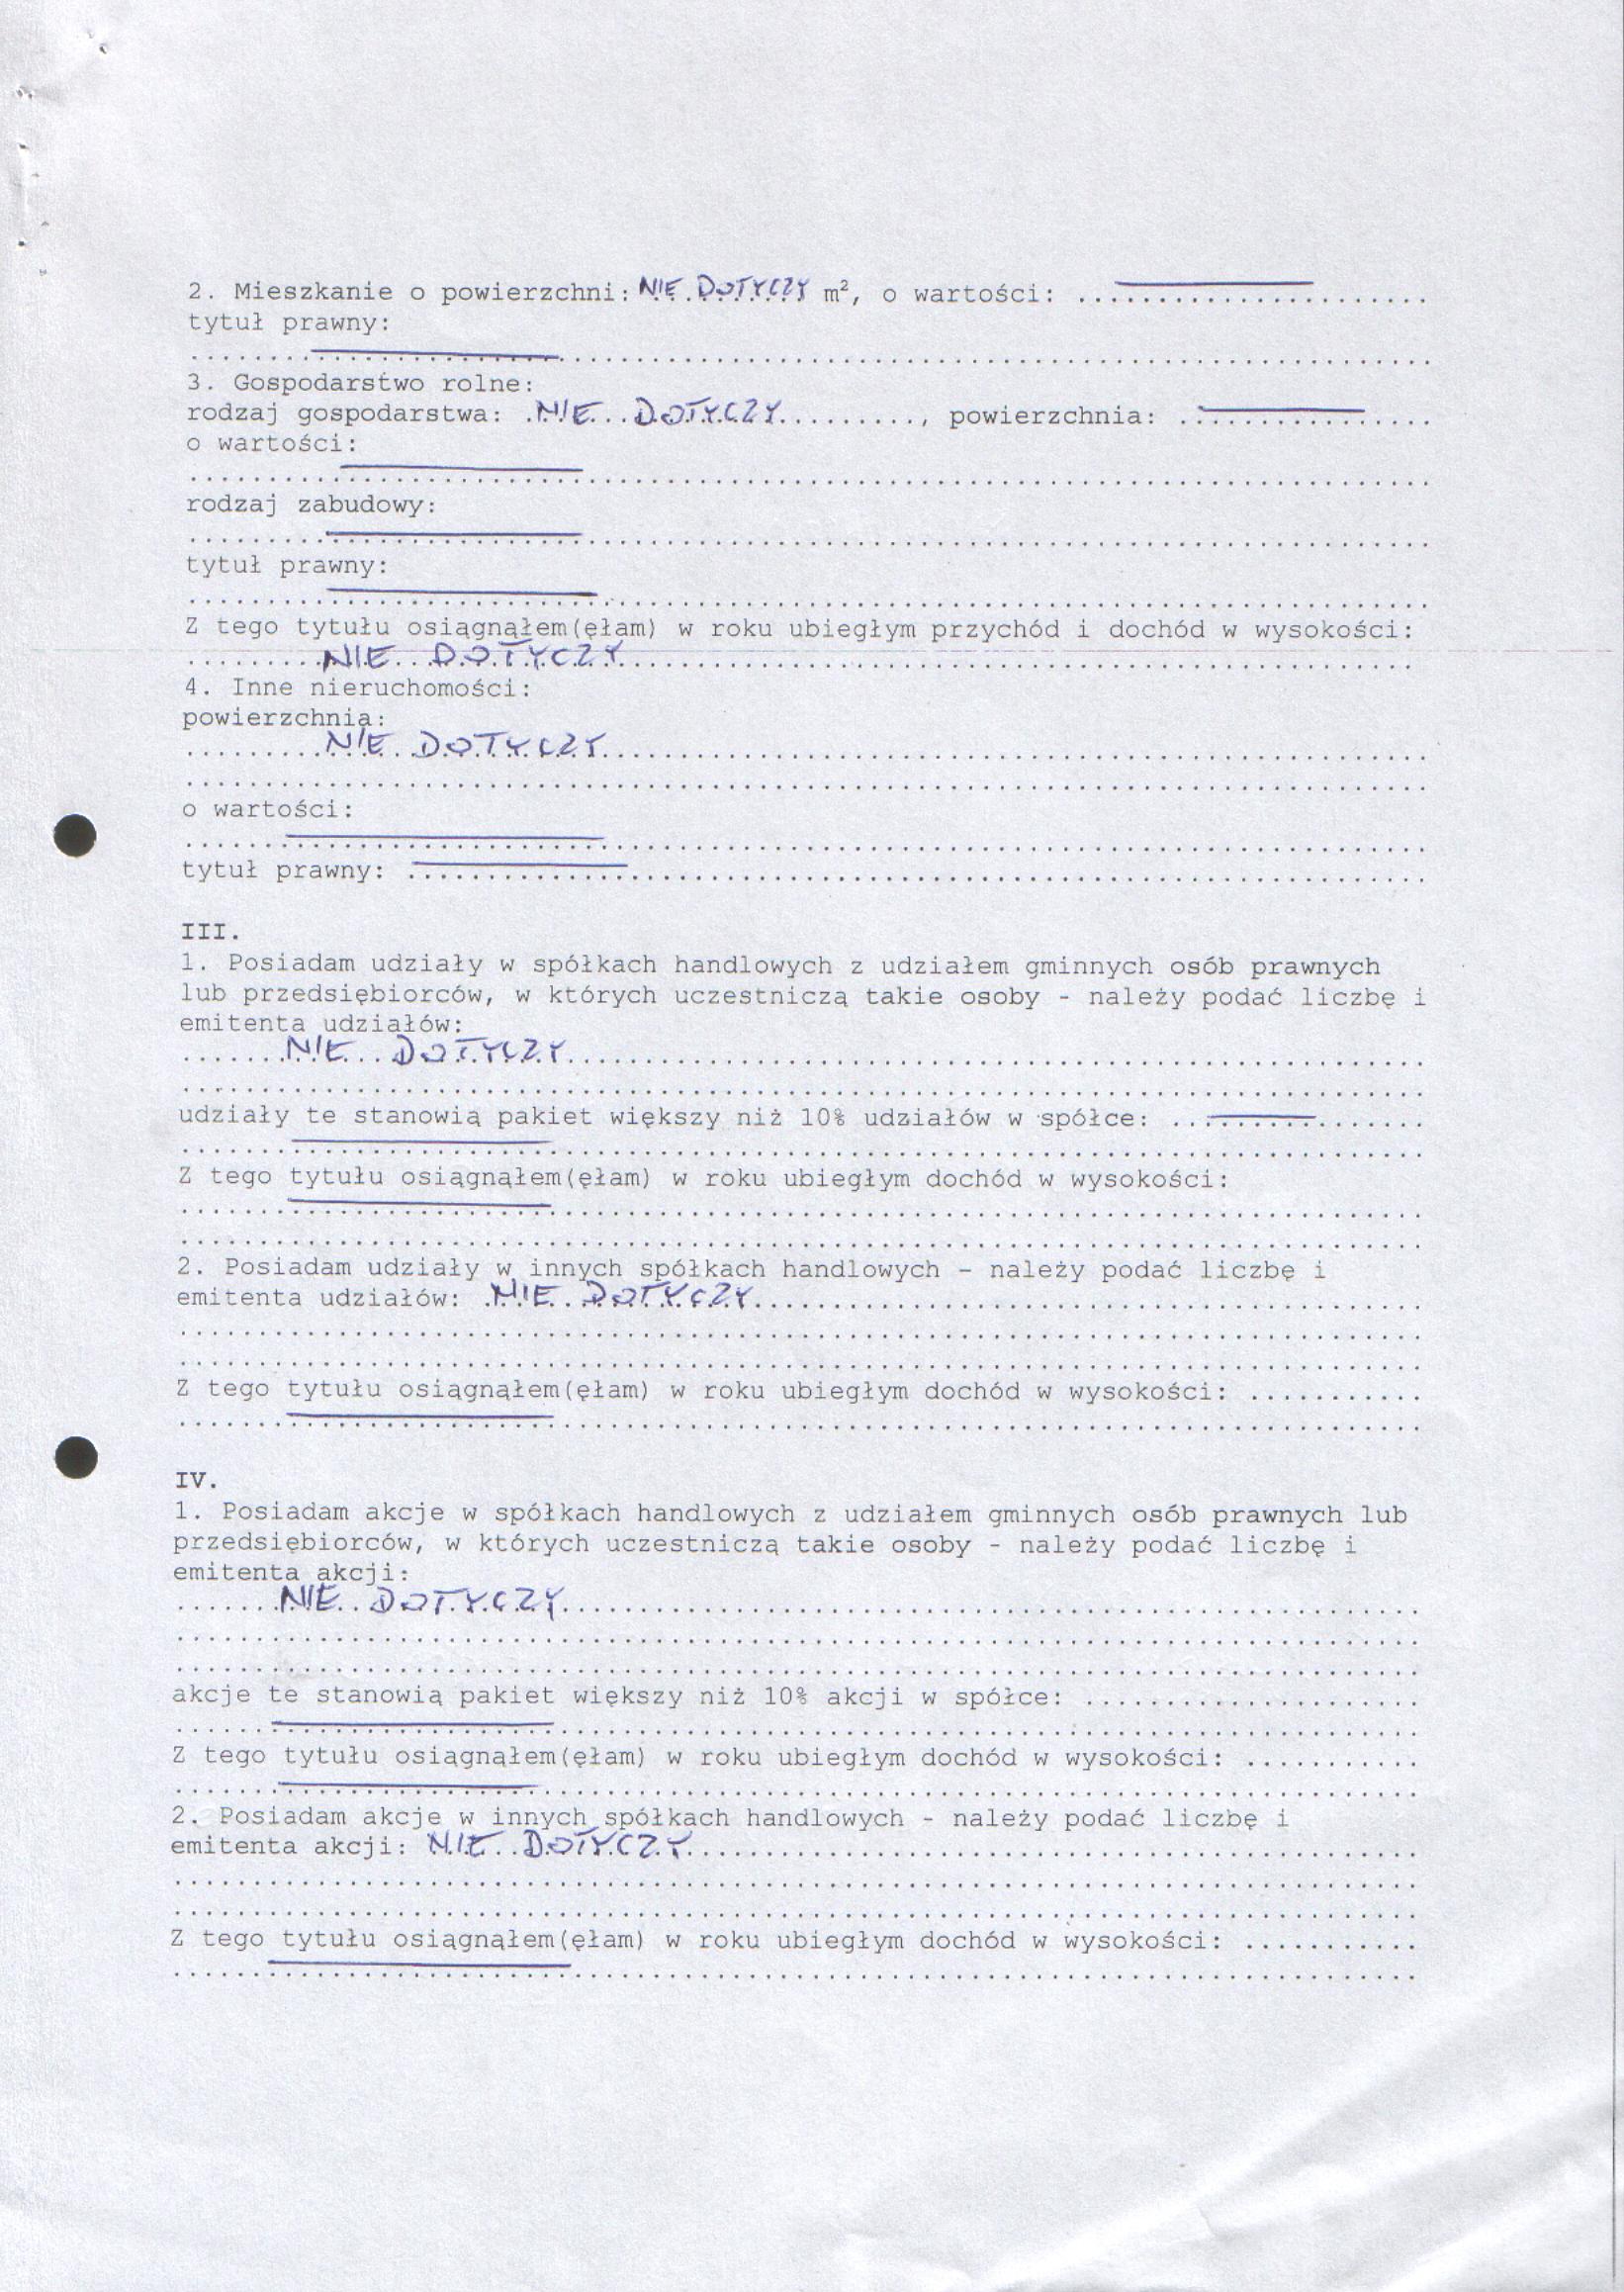 2. Mieszkanie o powierzchni: NIE DOTYCZY m², o wartości: ........................
tytuł prawny:
................................................................................
3. Gospodarstwo rolne:
rodzaj gospodarstwa: .NIE...DOTYCZY.........., powierzchnia: .................
o wartości:
................................................................................
rodzaj zabudowy:
................................................................................
tytuł prawny:
................................................................................
Z tego tytułu osiągnąłem(ęłam) w roku ubiegłym przychód i dochód w wysokości:
.........NIE..DOTYCZY...................................................
4. Inne nieruchomości:
powierzchnia:
.........NIE..DOTYCZY....................................................
................................................................................
o wartości:
................................................................................
tytuł prawny: ..................................................................
III.
1. Posiadam udziały w spółkach handlowych z udziałem gminnych osób prawnych
lub przedsiębiorców, w których uczestniczą takie osoby - należy podać liczbę i
emitenta udziałów:
.......NIE...DOTYCZY.......................................................
................................................................................
udziały te stanowią pakiet większy niż 10% udziałów w spółce: ................
................................................................................
Z tego tytułu osiągnąłem(ęłam) w roku ubiegłym dochód w wysokości:
................................................................................
................................................................................
2. Posiadam udziały w innych spółkach handlowych - należy podać liczbę i
emitenta udziałów: .NIE..DOTYCZY...........................................
................................................................................
................................................................................
Z tego tytułu osiągnąłem(ęłam) w roku ubiegłym dochód w wysokości: ...........
................................................................................
IV.
1. Posiadam akcje w spółkach handlowych z udziałem gminnych osób prawnych lub
przedsiębiorców, w których uczestniczą takie osoby - należy podać liczbę i
emitenta akcji:
.......NIE..DOTYCZY.......................................................
................................................................................
................................................................................
akcje te stanowią pakiet większy niż 10% akcji w spółce: ......................
................................................................................
Z tego tytułu osiągnąłem(ęłam) w roku ubiegłym dochód w wysokości: ...........
................................................................................
2. Posiadam akcje w innych spółkach handlowych - należy podać liczbę i
emitenta akcji: NIE..DOTYCZY...............................................
................................................................................
................................................................................
Z tego tytułu osiągnąłem(ęłam) w roku ubiegłym dochód w wysokości: ...........
................................................................................